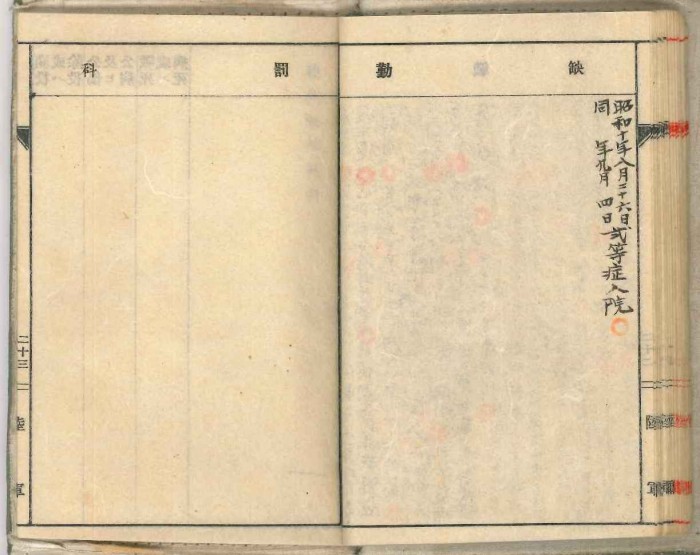 缺勤
昭和十年八月二十六日
同 年九月 四日 弐等症入院
罰科
二十三
陸軍